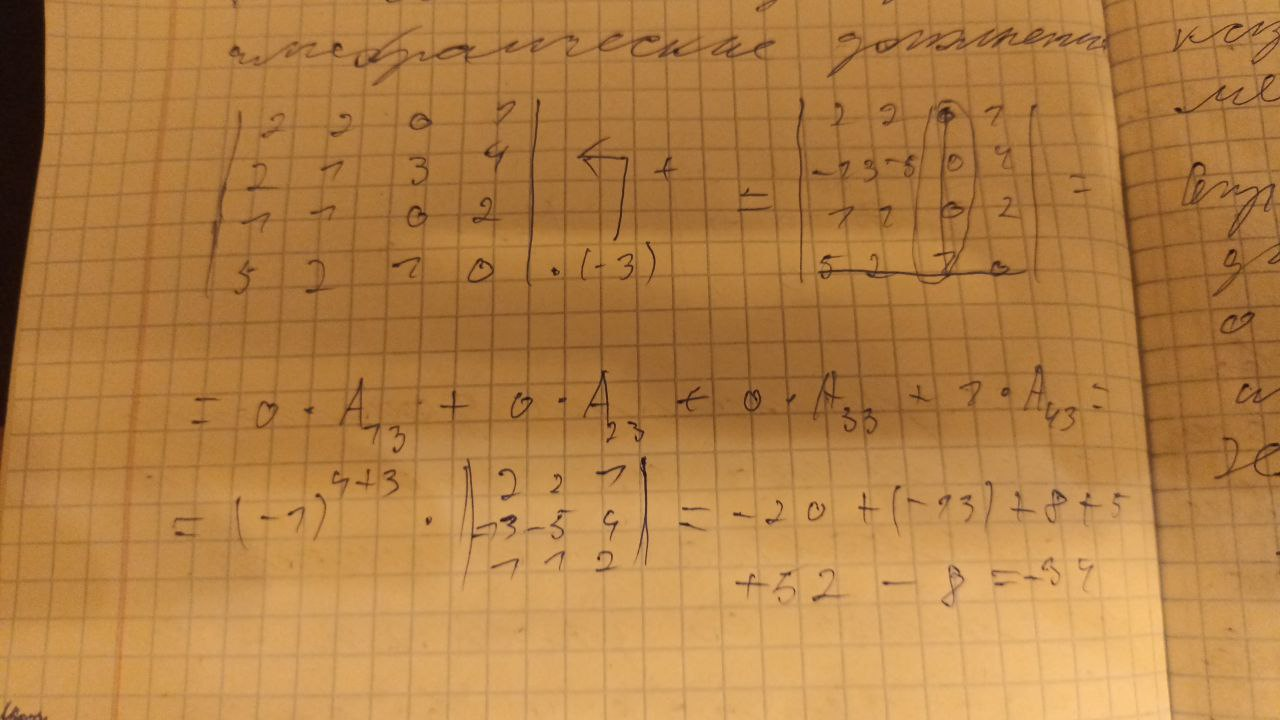 алгебраические дополнения
| 2 2 0 1 |
| 2 1 3 4 | ← +
| 1 1 0 2 |
| 5 2 1 0 | · (-3)
= | 2 2 0 1 |
| -13 -5 0 4 | =
| 1 1 0 2 |
| 5 2 1 0 |
= 0 · A₁₃ + 0 · A₂₃ + 0 · A₃₃ + 1 · A₄₃ =
= (-1)⁴⁺³ · | 2 2 1 |
| -13 -5 4 | = -20 + (-13) + 8 + 5
| 1 1 2 |
+52 - 8 = -34